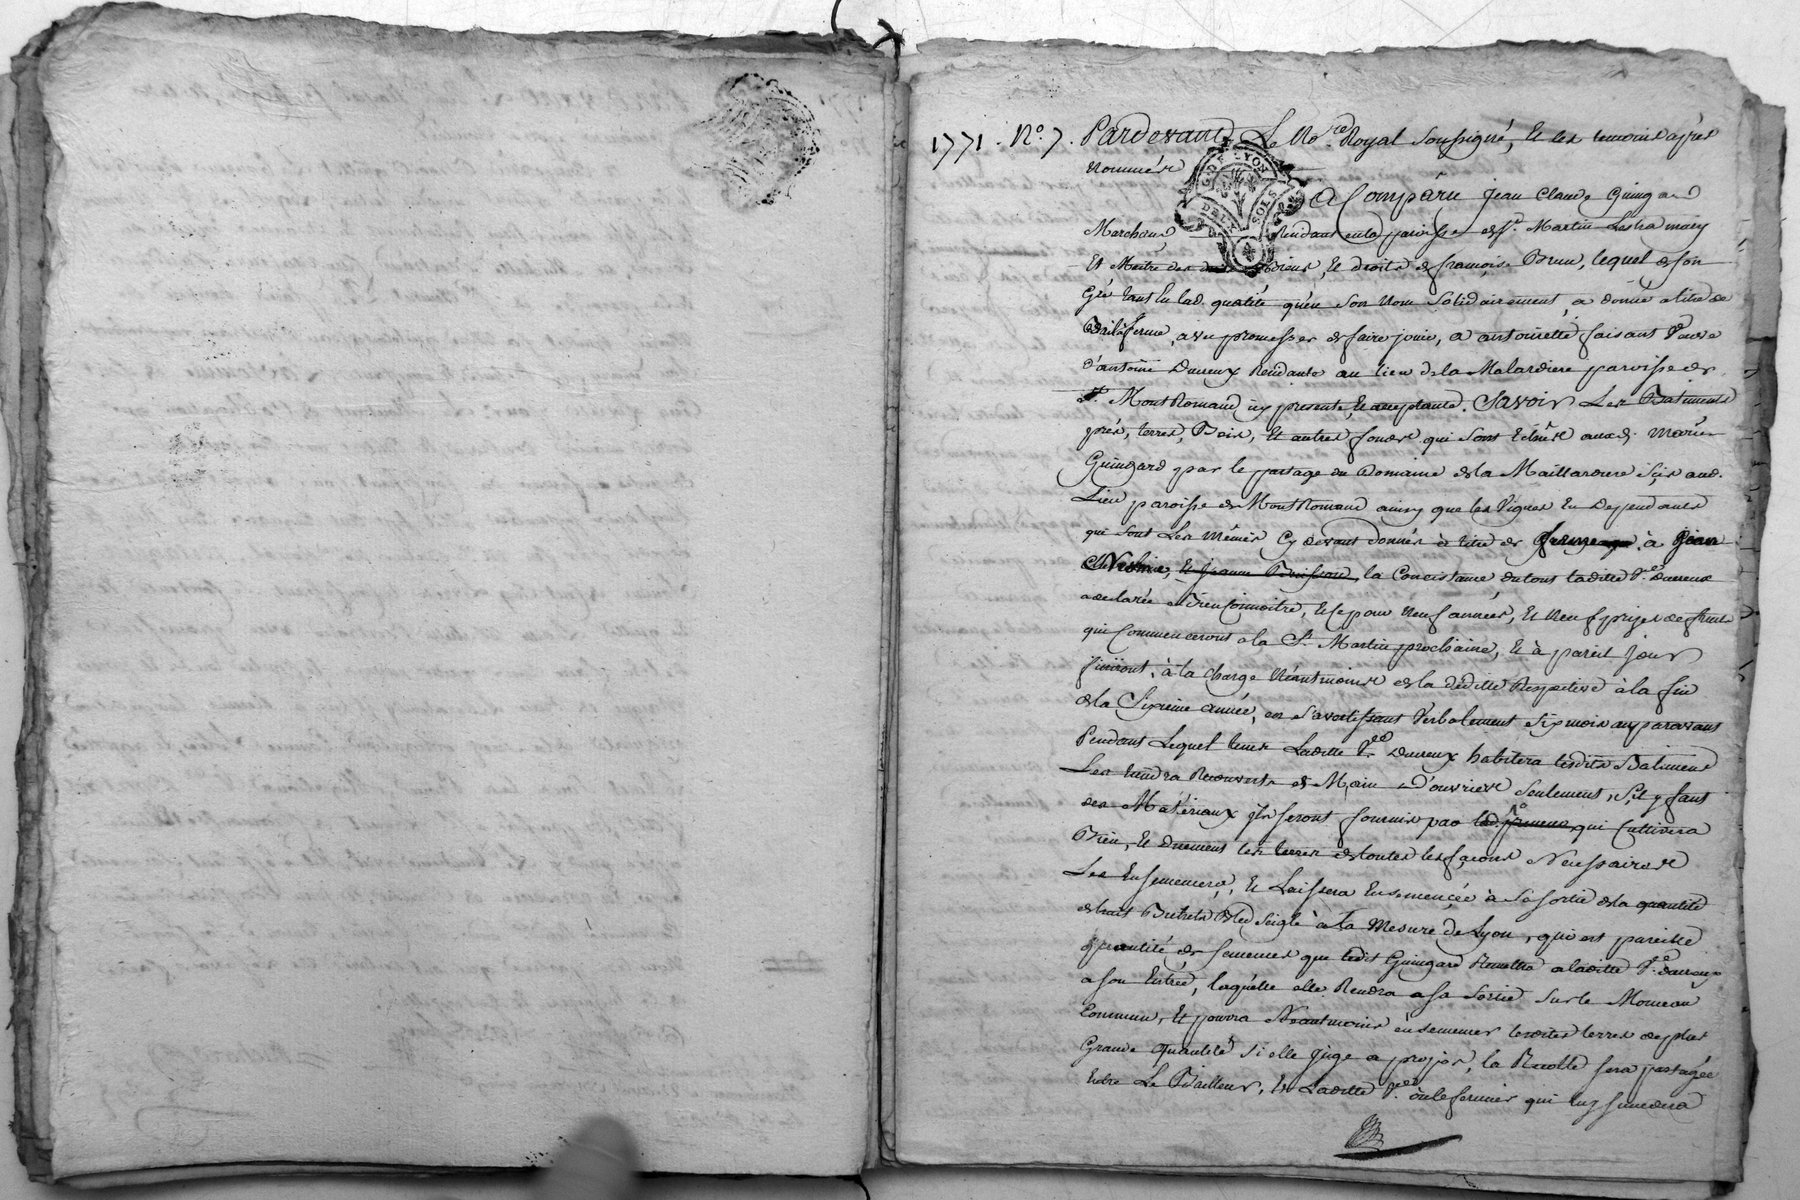 1771. N.º 7. Pardevant Le No.re Royal soussigné, Et les temoins après
nommés
G. DE LYON
DEUX SOLS
A Comparu Jean Claude Guingard
Marchand Residant en la paroisse de St. Martin Lestra mary
Et Maitre des Biens, Et droits de françoise Brun, lequel de son
Gré tant En lad. qualité qu'en son nom solidairement, a donné a titre de
Bail à ferme, avec promesse de faire jouir, a antoinette faisant Veuve
d'antoine Dureux Residante au lieu de la Malardiere paroisse de
Mont Romand icy presente, Et acceptante. Savoir Les Batiments
prés, terres, Bois, Et autres fonds qui sont Echus auxd. Mariés
Guingard par le partage du Domaine de la Maillardiere sis aud.
Lieu paroisse de Mont Romand ainsy que les Vignes En Dependants
qui sont Les mêmes Cy devant donnés à titre de à Jean
la Consistance du tout laditte V.e Dureux
a declarée Bien Connoitre, Et ce pour neuf années, Et neuf prises de fruits
qui Commenceront a la St. Martin prochaine, Et à pareil jour
finiront, à la charge Néantmoins de la déditte Respective à la fin
de la Sixieme année, en s'avertissant Verbalement six mois auparavant
Pendant Lequel tems Laditte V.e Dureux habitera lesdits Batiments
Les tiendra Recouverts de Main D'ouvriers seulement, s'il y faut
des Matériaux ils seront fournis par qui Cultivera
Bien, Et duement les terres de toutes les façons Necessaires
Les Ensemencera, Et Laissera Ensemencée à Sa sortie de la quantité
de huit Bichets Bled Seigle à la Mesure de Lyon, qui est pareille
quantité de semences que ledit Guingard Remettra a laditte V.e Dureux
a son Entrée, laquelle elle Rendra a sa sortie sur le Monceau
Commun, Et pourra Néantmoins ensemencer lesdites terres de plus
Grande quantité si elle juge a propos, la Recolte sera partagée
Entre Le Bailleur, Et Laditte V.e ou le fermier qui luy succedera